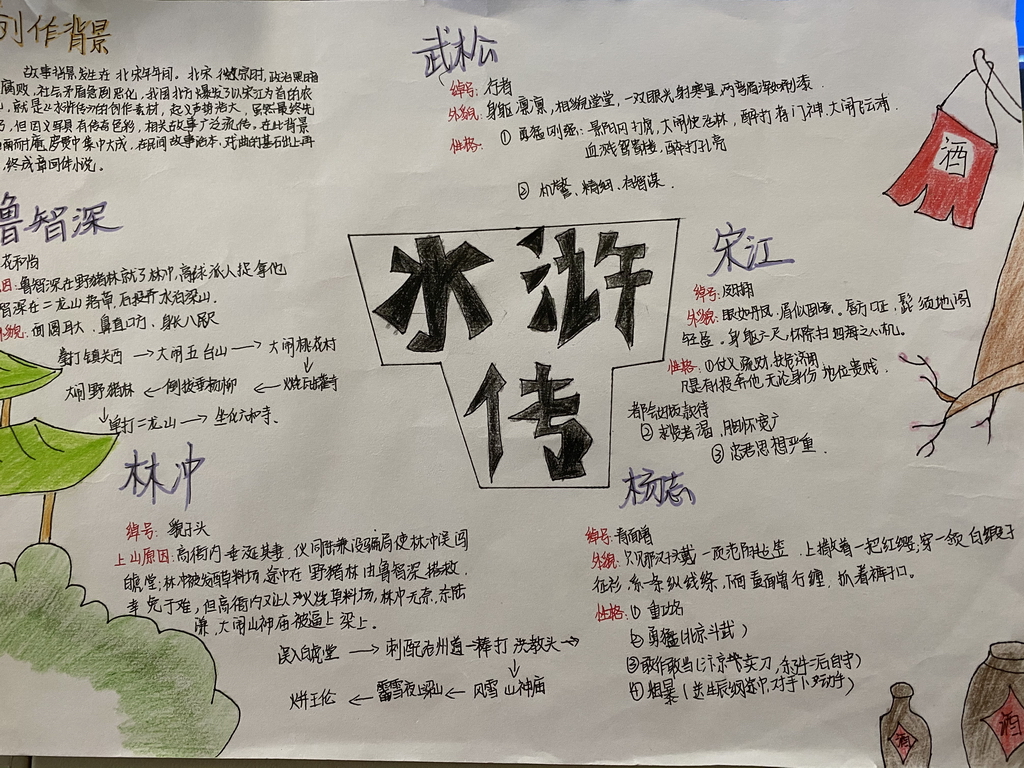 创作背景
故事背景发生在北宋年间。北宋徽宗时,政治黑暗
腐败,社会矛盾急剧恶化,我国北方爆发了以宋江为首的农
就是《水浒传》的创作素材,起义声势浩大,虽然最终失
但因义军具有传奇色彩,相关故事广泛流传。在此背景
施耐庵
集大成,在民间故事话本、戏曲的基础上再
终成章回体小说。
武松
绰号:行者
外貌:身躯凛凛,相貌堂堂,一双眼光射寒星,两弯眉浑如刷漆
性格:①勇猛刚强:景阳冈打虎,大闹快活林,醉打蒋门神,大闹飞云浦
血溅鸳鸯楼,醉打孔亮
②机警、精细、有智谋.
酒
鲁智深
花和尚
因:鲁智深在野猪林就了林冲,高俅派人捉拿他
智深在二龙山落草,后投奔水泊梁山.
外貌:面圆耳大、鼻直口方、身长八尺
拳打镇关西→大闹五台山→大闹桃花村
大闹野猪林←倒拔垂杨柳←火烧瓦罐寺
单打二龙山→坐化六和寺、
水浒
传
宋江
绰号:及时雨
外貌:眼如丹凤,眉似卧蚕。唇方口正,髭须地阁
轻盈。身躯六尺,怀除扫四海之心机。
性格:①仗义疏财,扶危济困
凡是有人投奔他,无论身份地位贵贱.
都会
款待
②求贤若渴,胸怀宽广
③忠君思想严重.
林冲
绰号:豹子头
上山原因:高衙内垂涎其妻,伙同陆谦设骗局使林冲误闯
白虎堂;林冲被发配草料场,途中在野猪林由鲁智深搭救.
幸免于难,但高衙内又让人火烧草料场,林冲无奈,杀陆
谦,大闹山神庙被逼上梁上.
误入白虎堂→刺配沧州道→棒打洪教头→
火并王伦←雪夜上梁山←风雪山神庙
杨志
绰号:青面兽
外貌:只见那汉子戴一顶范阳毡笠,上撒着一把红缨;穿一领白缎子
征衫,系一条纵线绦,下面青白行缠,抓着裤子口。
性格:①重功名
②勇猛(北京斗武)
③敢作敢当(汴京卖刀,杀牛二后自守)
④粗暴(送生辰纲途中,对手下
酒
酒